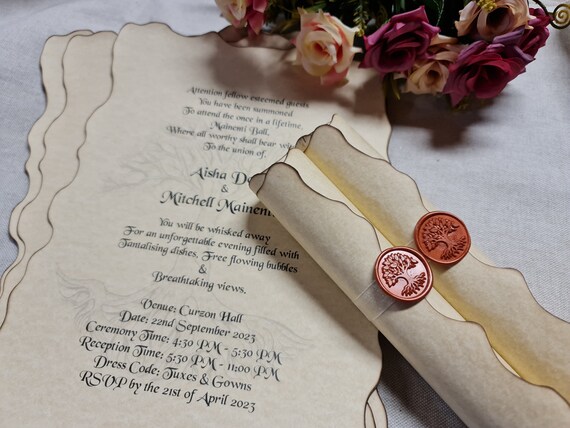 Attention fellow esteemed guests
You have been summoned
To attend the once in a lifetime,
Mainemi Ball,
Where all worthy shall bear
To the union of.
Aisha
&
Mitchell
You will be whisked away
For an unforgettable evening filled with
Tantalising dishes, Free flowing bubbles
&
Breathtaking views.
Venue: Curzon Hall
Date: 22nd September 2023
Ceremony Time: 4:30 PM - 5:30 PM
Reception Time: 5:30 PM - 11:00 PM
Dress Code: Tuxes & Gowns
RSVP by the 21st of April 2023